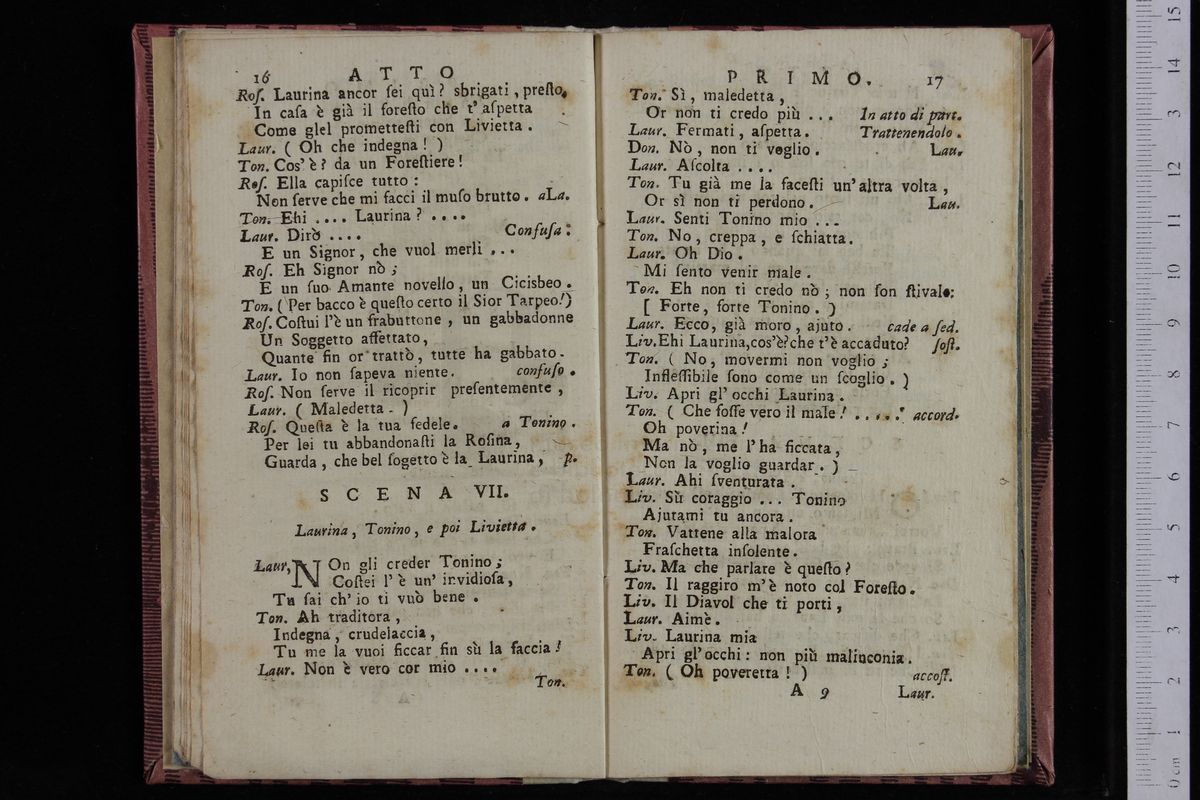 16 ATTO
Roſ. Laurina ancor ſei quì? sbrigati, preſto,
In caſa è già il foreſto che t' aſpetta
Come glel prometteſti con Livietta.
Laur. ( Oh che indegna! )
Ton. Cos' è? da un Foreſtiere!
Roſ. Ella capiſce tutto:
Non ſerve che mi facci il muſo brutto. aLa.
Ton. Ehi .... Laurina? ....
Laur. Dirò .... Confuſa:
E un Signor, che vuol merli ...
Roſ. Eh Signor nò;
E un ſuo Amante novello, un Cicisbeo.
Ton. (Per bacco è queſto certo il Sior Tarpeo!)
Roſ. Coſtui l'è un frabuttone, un gabbadonne
Un Soggetto affettato,
Quante fin or trattò, tutte ha gabbato.
Laur. Io non ſapeva niente. confuſo.
Roſ. Non ſerve il ricoprir preſentemente,
Laur. ( Maledetta. )
Roſ. Queſta è la tua fedele. a Tonino.
Per lei tu abbandonaſti la Roſina,
Guarda, che bel ſogetto è la Laurina, p.
SCENA VII.
Laurina, Tonino, e poi Livietta.
Laur, NOn gli creder Tonino;
Coſtei l' è un' invidioſa,
Tu ſai ch' io ti vuò bene.
Ton. Ah traditora,
Indegna, crudelaccia,
Tu me la vuoi ficcar fin sù la faccia!
Laur. Non è vero cor mio ....
Ton.
PRIMO. 17
Ton. Sì, maledetta,
Or non ti credo più ... In atto di part.
Laur. Fermati, aſpetta. Trattenendolo.
Don. Nò, non ti voglio. Lau.
Laur. Aſcolta ....
Ton. Tu già me la faceſti un' altra volta,
Or sì non ti perdono. Lau.
Laur. Senti Tonino mio ...
Ton. No, creppa, e ſchiatta.
Laur. Oh Dio.
Mi ſento venir male.
Ton. Eh non ti credo nò; non ſon ſtivale:
[ Forte, forte Tonino. )
Laur. Ecco, già moro, ajuto. cade a ſed.
Liv. Ehi Laurina, cos'è? che t'è accaduto? ſoſt.
Ton. ( No, movermi non voglio;
Infleſſibile ſono come un ſcoglio. )
Liv. Apri gl' occhi Laurina.
Ton. ( Che foſſe vero il male! ..... accord.
Oh poverina!
Ma nò, me l' ha ficcata,
Non la voglio guardar. )
Laur. Ahi ſventurata.
Liv. Sù coraggio ... Tonino
Ajutami tu ancora.
Ton. Vattene alla malora
Fraſchetta inſolente.
Liv. Ma che parlare è queſto?
Ton. Il raggiro m'è noto col Foreſto.
Liv. Il Diavol che ti porti,
Laur. Aimè.
Liv. Laurina mia
Apri gl' occhi: non più malinconia.
Ton. ( Oh poveretta! ) accoſt.
A 9 Laur.
0 cm 1 2 3 4 5 6 7 8 9 10 11 12 13 14 15